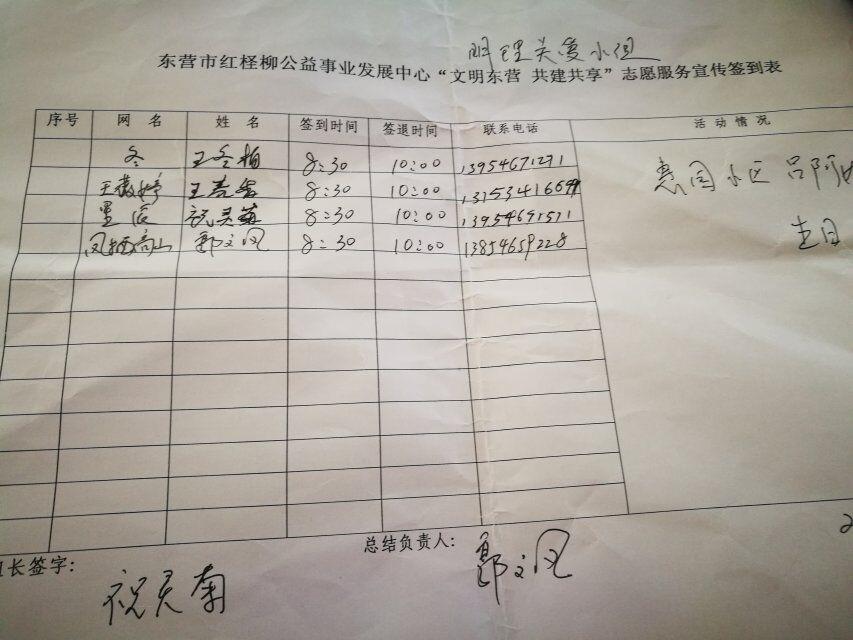 明理关爱小组
东营市红柽柳公益事业发展中心“文明东营 共建共享”志愿服务宣传签到表
序号 网 名 姓 名 签到时间 签退时间 联系电话 活 动 情 况
冬 王冬梅 8:30 10:00 13954671271
8:30 10:00
星辰 8:30 10:00 13954691511
凤栖高山 郭文凤 8:30 10:00 13854659228
惠园小区 吕阿
生日
长签字: 总结负责人:
郭文凤